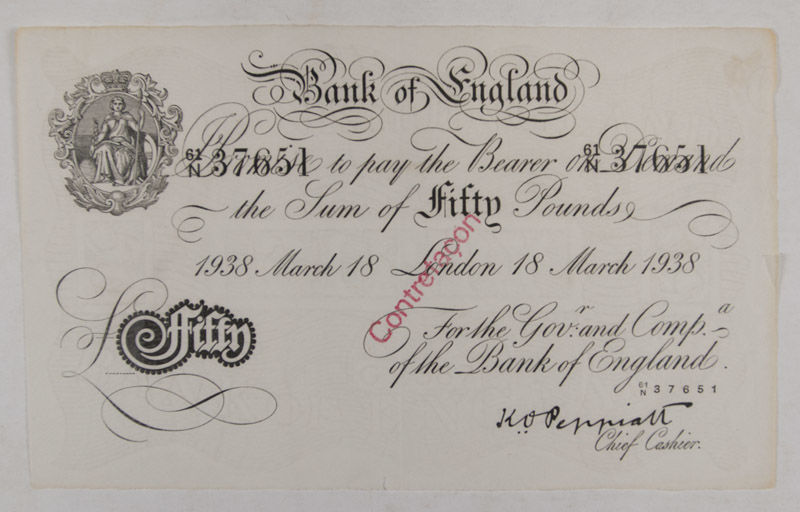 Bank of England
I Promise to pay the Bearer on Demand
61/N 37651
61/N 37651
the Sum of Fifty Pounds
1938 March 18 London 18 March 1938
Contrefaçon
For the Govr. and Compa.
of the Bank of England.
£ Fifty
61/N 37651
K.O. Peppiatt
Chief Cashier.